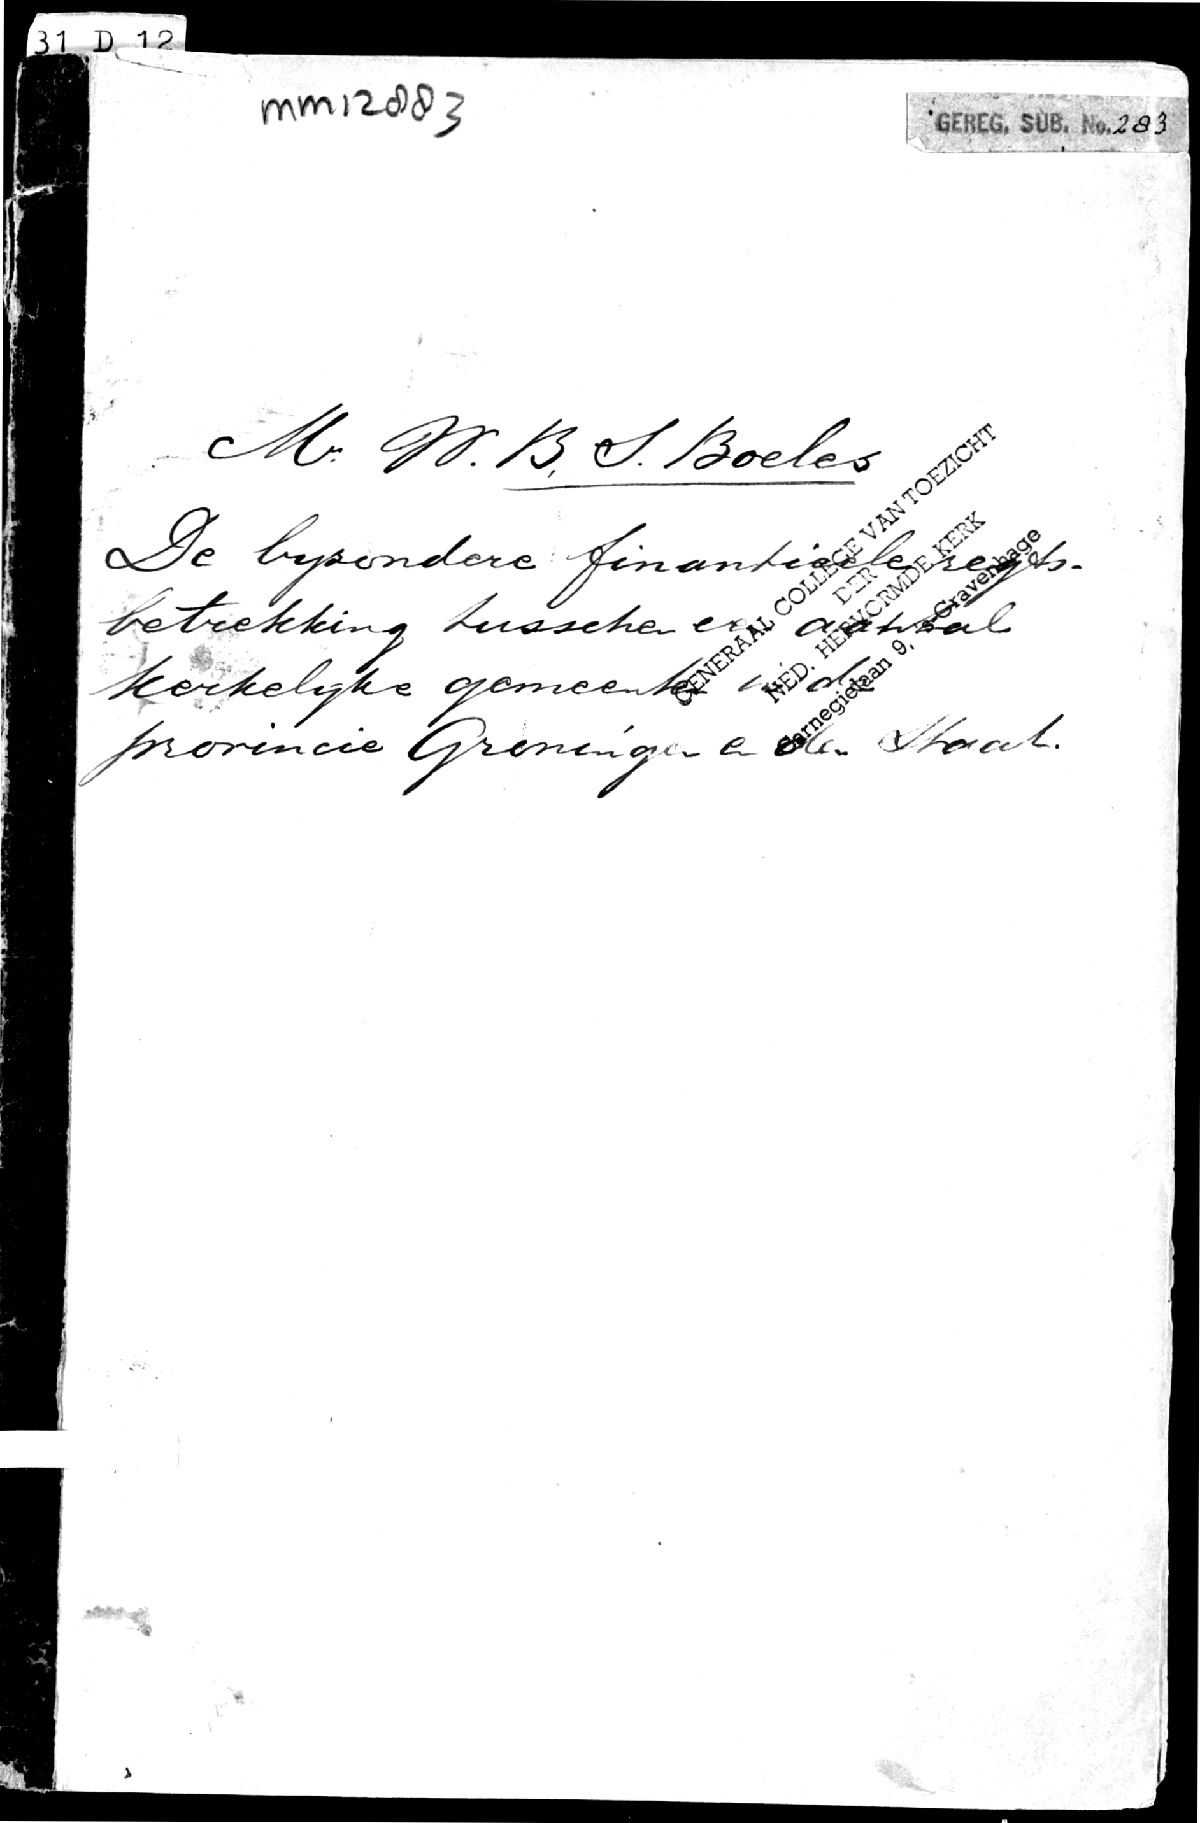 31 D 12
mm12883
GEREG. SUB. No. 283
Mr. W. B. S. Boeles
De byzondere finantieele regts-
betrekking tusschen een aantal
kerkelyke gemeenten in de
provincie Groningen en den Staat.
GENERAAL COLLEGE VAN TOEZICHT
DER
NED. HERVORMDE KERK
Carnegielaan 9, 's-Gravenhage